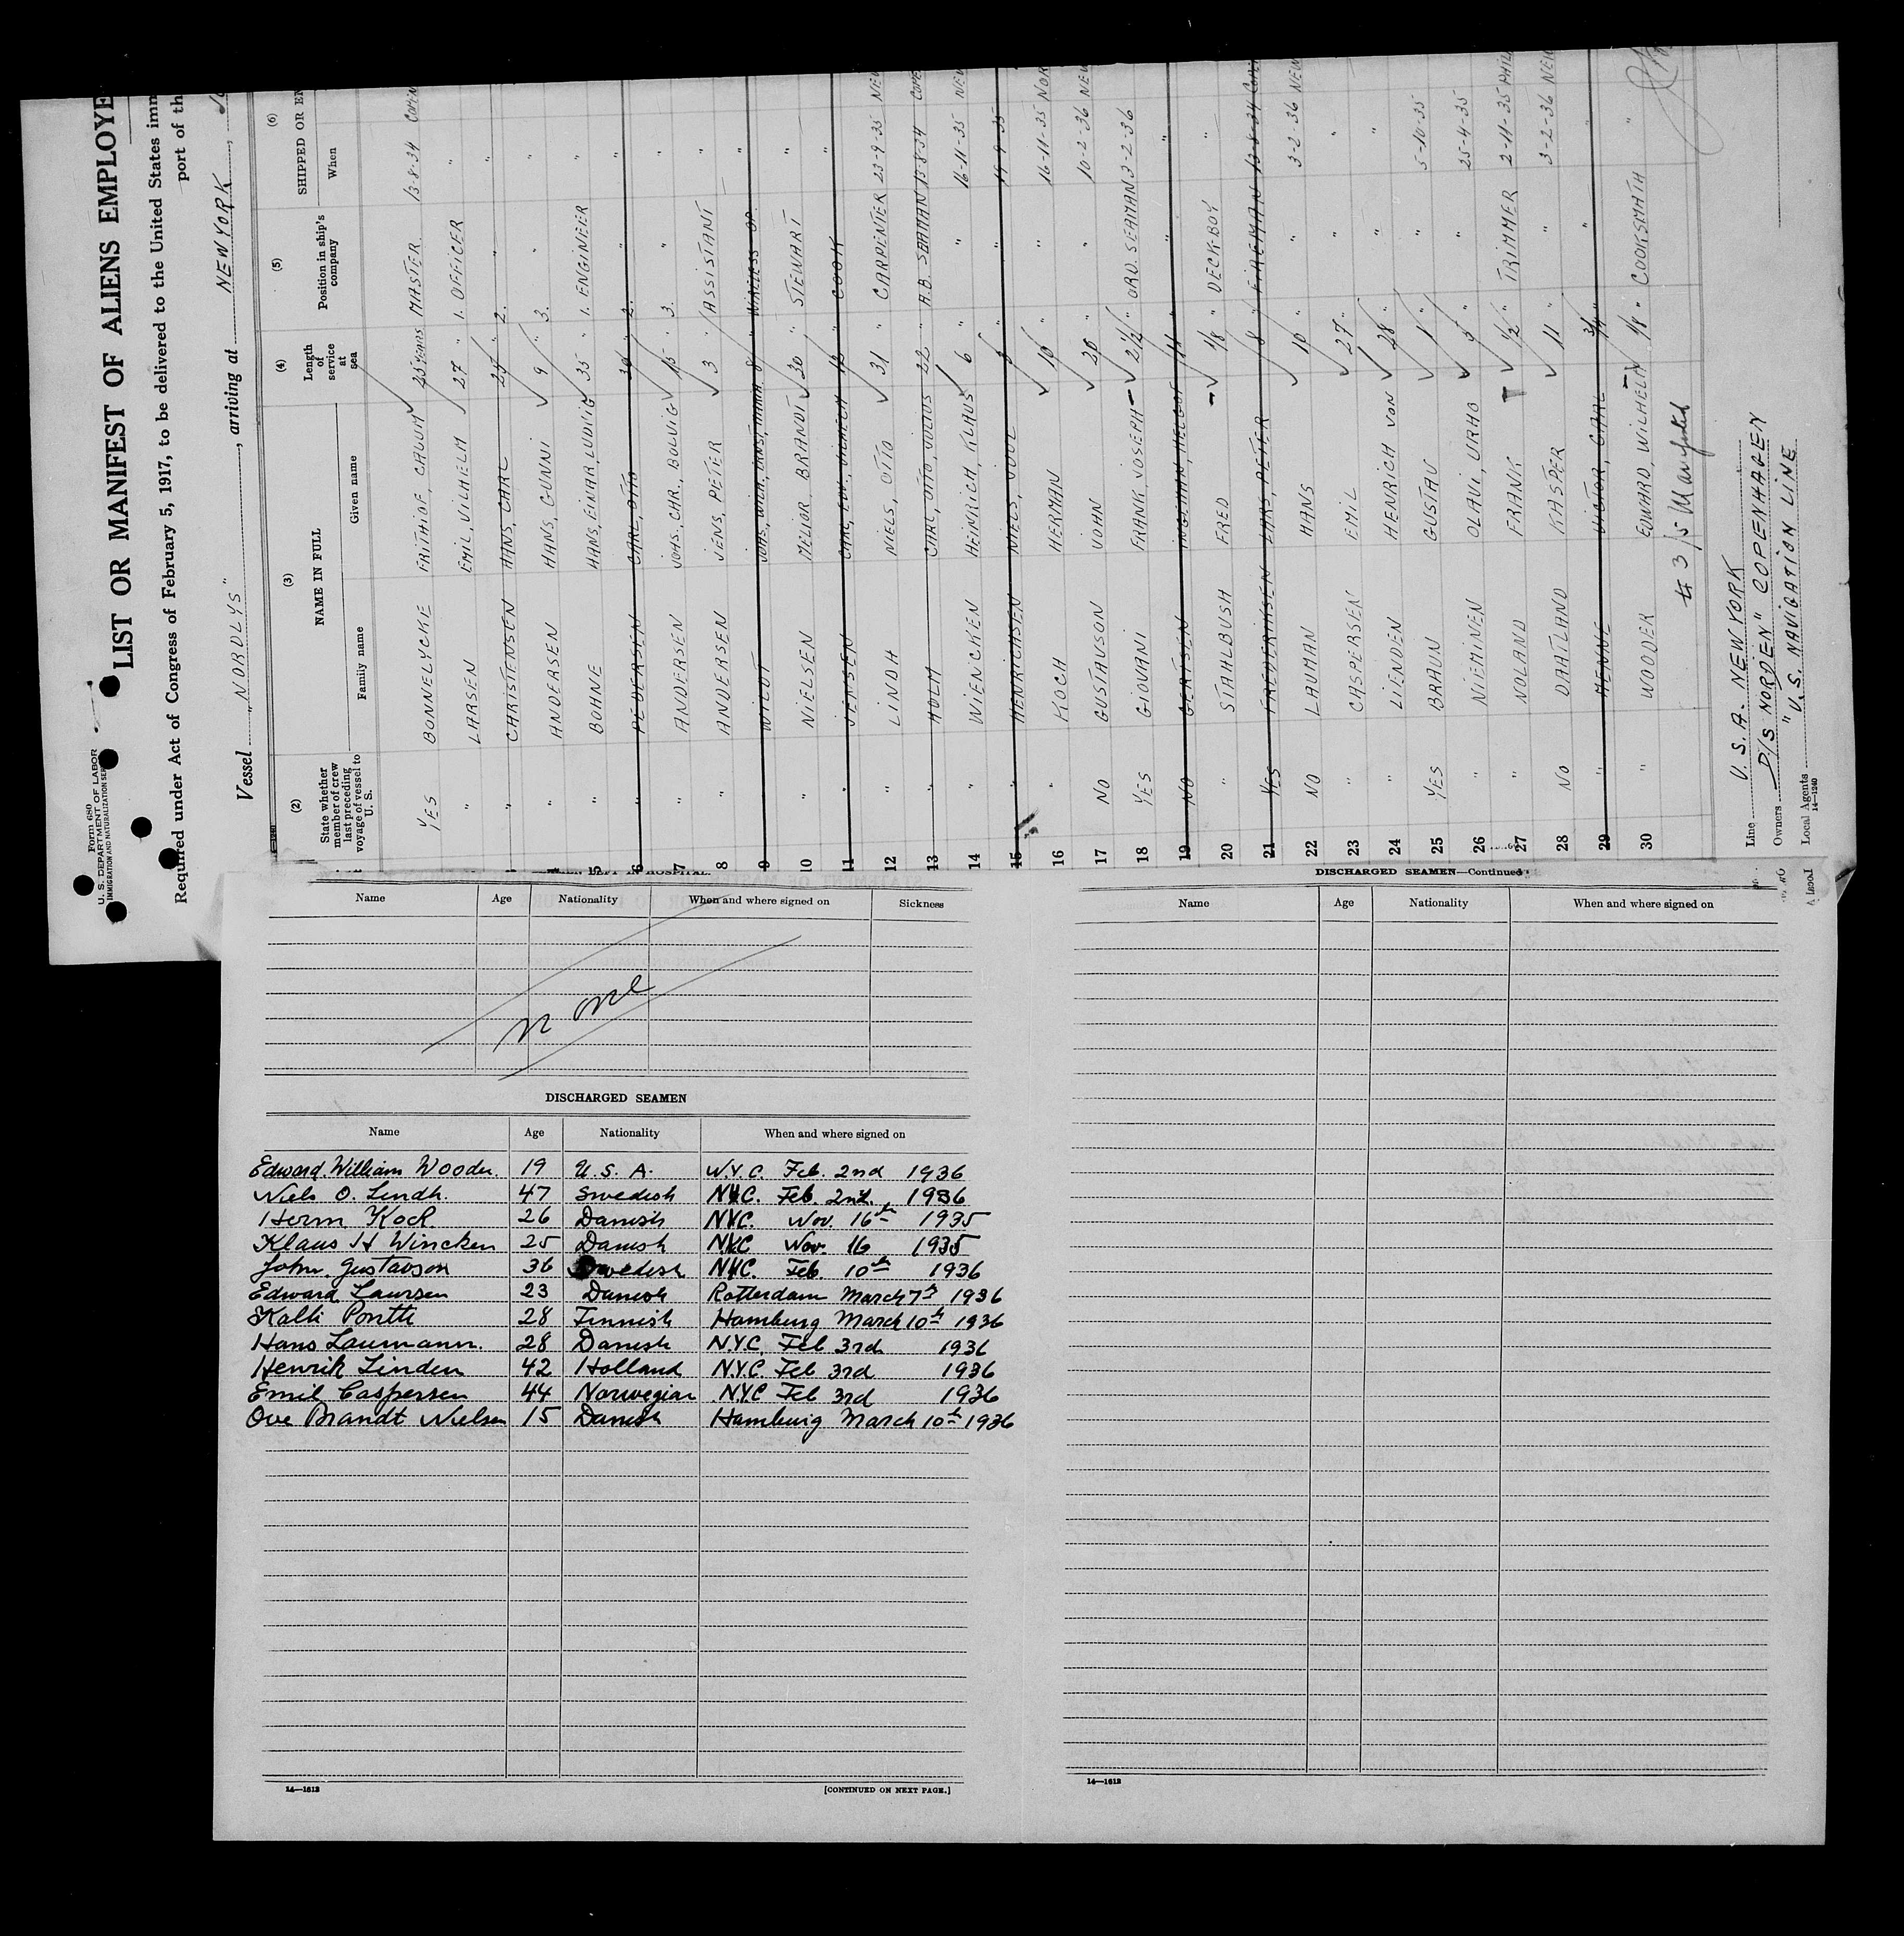 Form 680
U. S. DEPARTMENT OF LABOR
IMMIGRATION AND NATURALIZATION SERVICE
LIST OR MANIFEST OF ALIENS EMPLOYE
Required under Act of Congress of February 5, 1917, to be delivered to the United States imm
port of th
Vessel "NORDLYS", arriving at NEW YORK,
(2) (3) (4) (5) (6)
State whether member of crew last preceding voyage of vessel to U. S. NAME IN FULL Length of service at sea Position in ship's company SHIPPED OR EN
Family name Given name When
YES BONNELYCKE FRITHIOF, CHDUM 25 YEARS MASTER 13-8-34 COPEN
" LARSEN EMIL, VILHELM 27 " 1. OFFICER "
" CHRISTENSEN HANS, CARL 25 " 2. " "
" ANDERSEN HANS, GUNNI 9 " 3. " "
5 " BOHNE HANS, EINAR, LUDVIG 35 " 1. ENGINEER "
6 " PEDERSEN CARL, OTTO 30 " 2. " "
7 " ANDERSEN JOHS, CHR., BOLVIG 15 " 3. " "
8 " ANDERSEN JENS, PETER 3 " ASSISTANT "
9 " WILDT 8 " WIRELESS OP. "
10 " NIELSEN MELIOR BRANDT 30 " STEWART "
11 " JENSEN CARL, EDV., VILHELM 12 " COOK "
12 " LINDH NIELS, OTTO 31 " CARPENTER 23-9-35 NEW
13 " HOLM CARL, OTTO, JULIUS 22 " A.B. SEAMAN 13-8-34 COPE
14 " WIENCKEN HEINRICH, KLAUS 6 " " 16-11-35 NEW
15 " HENRICHSEN NIELS, JUUL 3 " " 19-9-35
16 " KOCH HERMAN 10 " " 16-11-35 NOR
17 NO GUSTAVSON JOHN 20 " " 10-2-36 NEW
18 YES GIOVANI FRANK, JOSEPH 2 1/2 " ORD. SEAMAN 3-2-36
19 NO GERTSEN INGEMAN, HELGOT " " "
20 " STAHLBUSH FRED 1/8 " DECK-BOY "
21 YES FREDERIKSEN LARS, PETER 8 " FIREMAN 13-8-34 COPEN
22 NO LAUMAN HANS 10 " " 3-2-36 NEW
23 " CASPERSEN EMIL 27 " " "
24 " LIENDEN HENRICH VON 28 " " "
25 YES BRAUN GUSTAV 1 " " 5-10-35
26 " NIEMINEN OLAVI, URHO 5 " " 25-4-35
27 " NOLAND FRANK 1/2 " TRIMMER 2-11-35 PHIL
28 NO DAATLAND KASPER 11 " " 3-2-36 NEW
29 " HENNE VICTOR, CARL 3/4 " " "
30 " WOODER EDWARD, WILHELM 1/8 " COOKSMATH "
Line U.S.A. NEW YORK
Owners D/S "NORDEN" COPENHAGEN
Local Agents "U.S. NAVIGATION LINE
14—1240
Name Age Nationality When and where signed on Sickness
none
DISCHARGED SEAMEN
Name Age Nationality When and where signed on
Edward William Wooder. 19 U. S. A. N.Y.C. Feb. 2nd 1936
Niels O. Lindh. 47 Swedish NYC. Feb 2nd. 1936
Herm Koch. 26 Danish NYC. Nov. 16th 1935
Klaus H Wincken 25 Danish NYC Nov. 16 1935
John Gustavson 36 Swedish NYC. Feb. 10th 1936
Edward Laursen 23 Danish Rotterdam March 7th 1936
Kalli Pontti 28 Finnish Hamburg March 10th 1936
Hans Laumann. 28 Danish N.Y.C. Feb 3rd 1936
Henrik Linden 42 Holland N.Y.C. Feb 3rd 1936
Emil Caspersen 44 Norwegian N.Y.C Feb 3rd 1936
Ove Brandt Nielsen 15 Danish Hamburg March 10th 1936
14—1612 [CONTINUED ON NEXT PAGE.]
DISCHARGED SEAMEN—Continued
Name Age Nationality When and where signed on
14—1612